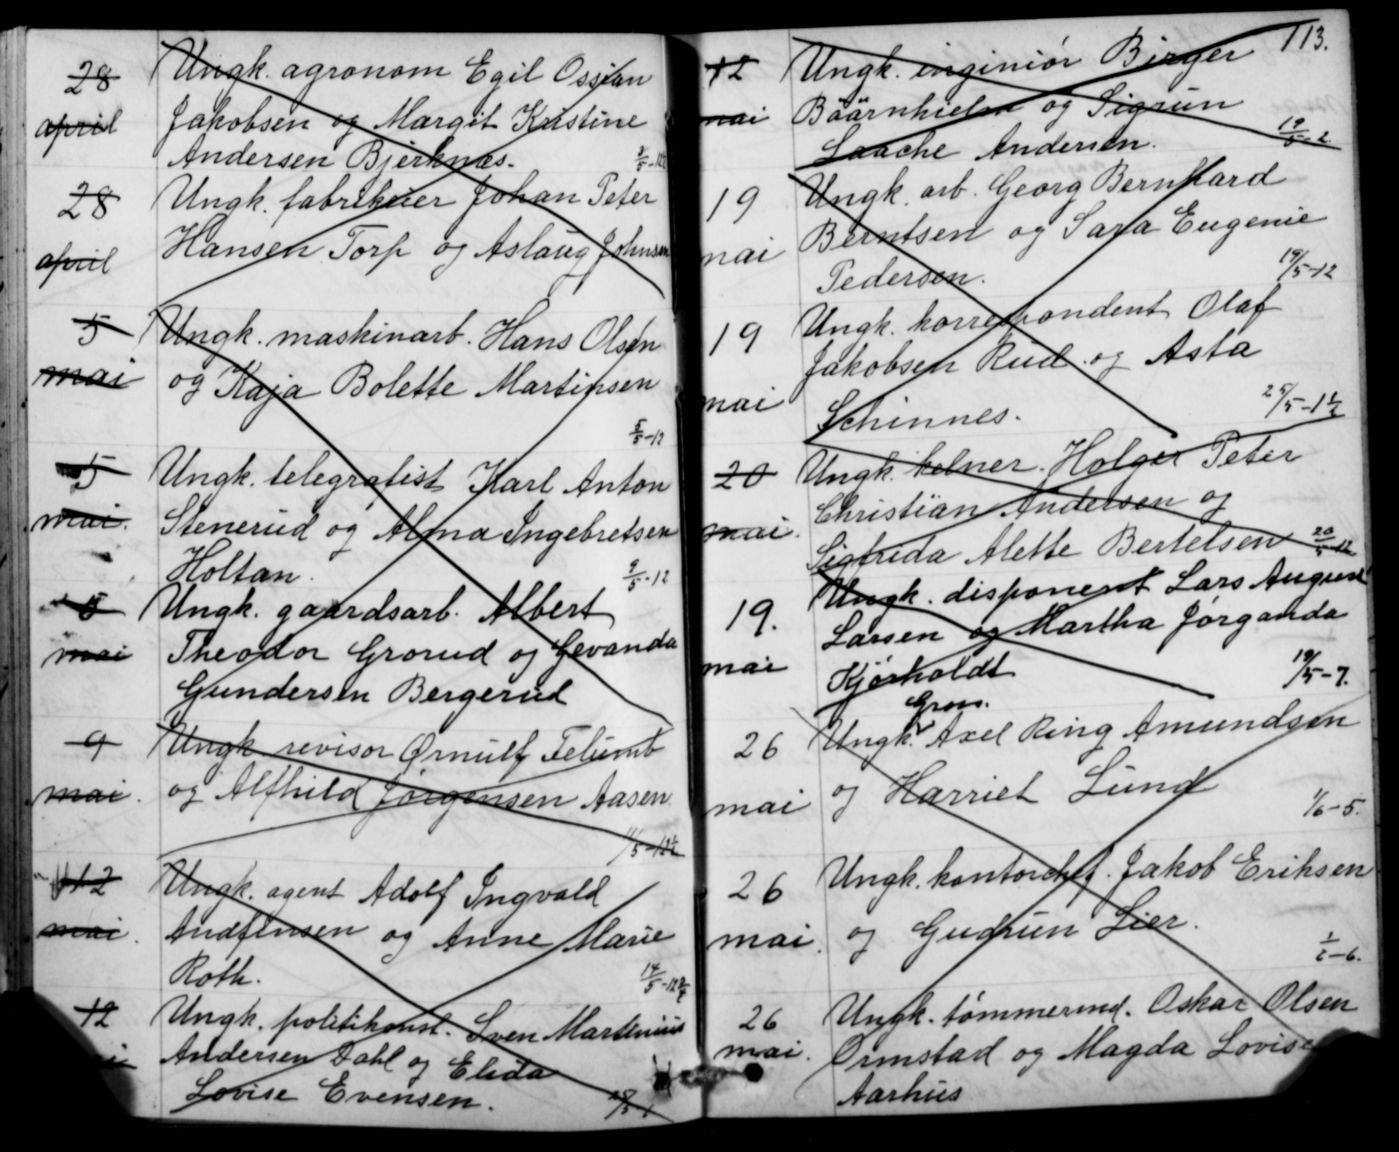 28 april
Ungk. agronom Egil Ossian
Jakobsen og Margit Kristine
Andersen Bjerknæs. 3/5-12
28 april
Ungk. fabrikeier Johan Peter
Hansen Torp og Aslaug Johnsen
5 mai
Ungk. maskinarb. Hans Olsen
og Kaja Bolette Martinsen
5/5-12
5 mai.
Ungk. telegrafist Karl Anton
Stenerud og Alma Ingebretsen
Holtan. 9/5-12
5 mai
Ungk. gaardsarb. Albert
Theodor Grorud og Gevanda
Gundersen Bergerud
9 mai.
Ungk revisor Ørnulf Felumb
og Alfhild Jørgensen Aasen.
11/5-12½
12 mai.
Ungk. agent Adolf Ingvald
og Anne Marie
Roth. 14/5-12
12
Ungk. politikonst. Sven Martinius
Andersen Dahl og Elida
Lovise Evensen.
113.
12 mai
Ungk. inginiør Birger
Böärnhielm og Sigrun
Laache Andersen. 19/5-2.
19 mai
Ungk. arb. Georg Bernhard
Berntsen og Sara Eugenie
Pedersen. 19/5-12
19 mai
Ungk. korrespondent Olaf
Jakobsen Rud og Asta
Schinnes. 25/5-1½
20 mai.
Ungk. kelner. Holger Peter
Christian Andersen og
Sigfrida Alette Bertelsen 20/5-12
19. mai
Ungk. disponent Lars August
Larsen og Martha Jørganda
Kjørholdt 19/5-7.
26 mai
Gross.
Ungk. Axel Ring Amundsen
og Harriet Lund
1/6-5.
26 mai.
Ungk. kontorchef. Jakob Eriksen
og Gudrun Lier.
1/6-6.
26 mai.
Ungk. tømmermd. Oskar Olsen
Ormstad og Magda Lovise
Aarhus